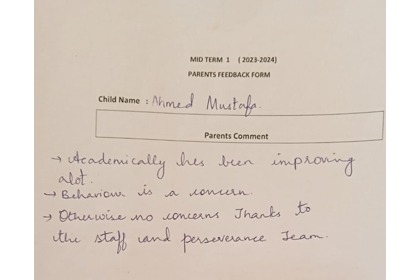 MID TERM 1 (2023-2024)
PARENTS FEEDBACK FORM
Child Name : Ahmed Mustafa.
Parents Comment
→ Academically has been improving
alot.
→ Behaviour is a concern.
→ Otherwise no concerns Thanks to
the staff and perseverance Team.